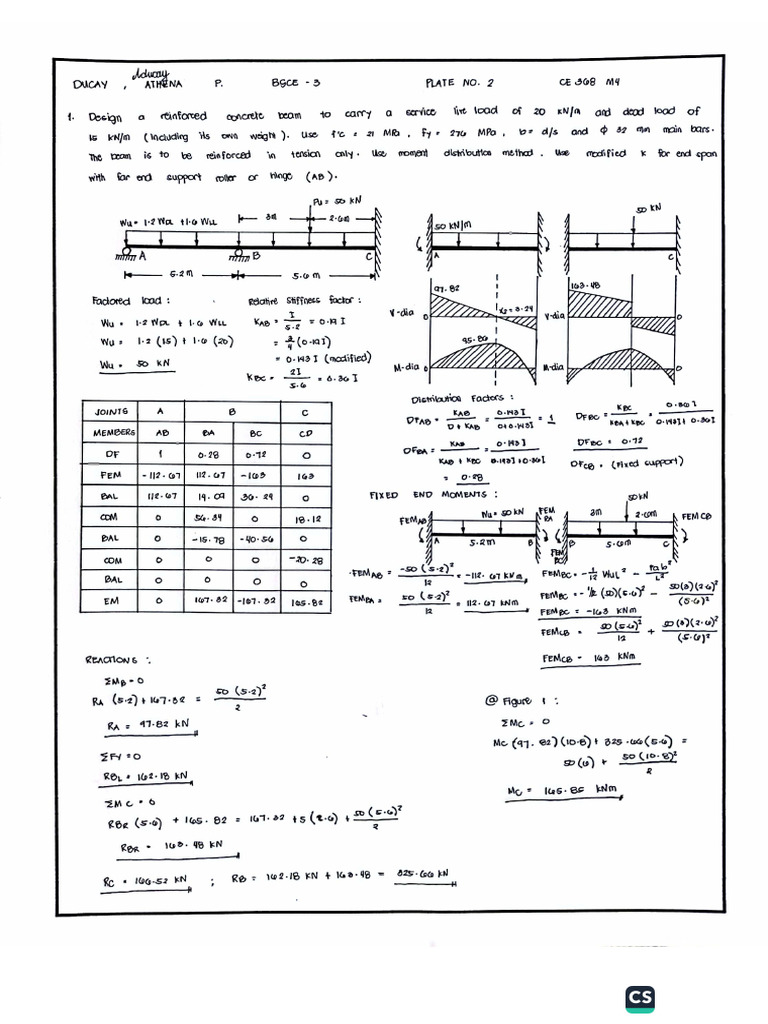 DUCAY , ATHENA P. BSCE - 3 PLATE NO. 2 CE 368 M4
1. Design a reinforced concrete beam to carry a service live load of 20 KN/m and dead load of
15 KN/m (including its own weight). Use f'c = 21 MPa, Fy = 276 MPa, b = d/s and φ 32 mm main bars.
The beam is to be reinforced in tension only. Use moment distribution method. Use modified K for end span
with far end support roller or hinge (AB).
Pu = 50 KN
Wu = 1.2 WDL + 1.6 WLL
3m
2.6m
A
B
C
5.2 m
5.6 m
50 KN/m
A
B
50 KN
C
97.82
X2 = 3.24
V-dia 0
0
95.86
M-dia 0
163.48
V-dia
0
M-dia
0
Factored load :
Wu = 1.2 WDL + 1.6 WLL
Wu = 1.2 (15) + 1.6 (20)
Wu = 50 KN
Relative Stiffness factor :
KAB = I / 5.2 = 0.19 I
= 3/4 (0.19 I)
= 0.143 I (modified)
KBC = 2I / 5.6 = 0.36 I
JOINTS A B C
MEMBERS AB BA BC CD
DF 1 0.28 0.72 0
FEM -112.67 112.67 -163 163
BAL 112.67 14.09 36.24 0
COM 0 56.34 0 18.12
BAL 0 -15.78 -40.56 0
COM 0 0 0 -20.28
BAL 0 0 0 0
EM 0 167.32 -167.32 165.82
Distribution Factors :
DFAB = KAB / 0 + KAB = 0.143 I / 0 + 0.143 I = 1
DFBA = KAB / KAB + KBC = 0.143 I / 0.143 I + 0.36 I
= 0.28
DFBC = KBC / KBA + KBC = 0.36 I / 0.143 I + 0.36 I
DFBC = 0.72
DFCB = (Fixed support)
FIXED END MOMENTS :
FEM AB
Wu = 50 KN
FEM BA
A
5.2 m
B
FEM BC
50 KN
3m
2.6m
FEM CB
B
5.6 m
C
FEMAB = -50 (5.2)² / 12 = -112.67 KNm
FEMBA = 50 (5.2)² / 12 = 112.67 KNm
FEMBC = - 1/12 WuL² - Pab² / L²
FEMBC = - 1/12 (50)(5.6)² - 50(3)(2.6)² / (5.6)²
FEMBC = -163 KNm
FEMCB = 50 (5.6)² / 12 + 50 (3)(2.6)² / (5.6)²
FEMCB = 163 KNm
REACTIONS :
ΣMB = 0
RA (5.2) + 167.32 = 50 (5.2)² / 2
RA = 97.82 KN
ΣFY = 0
RBL = 162.18 KN
ΣM C = 0
RBR (5.6) + 165.82 = 167.32 + 5 (2.6) + 50 (5.6)² / 2
RBR = 163.48 KN
RC = 166.52 KN ; RB = 162.18 KN + 163.48 = 325.66 KN
@ Figure 1 :
ΣMC = 0
MC (97.82)(10.8) + 325.66 (5.6) =
50 (6) + 50 (10.8)² / 2
MC = 165.85 KNm
CS